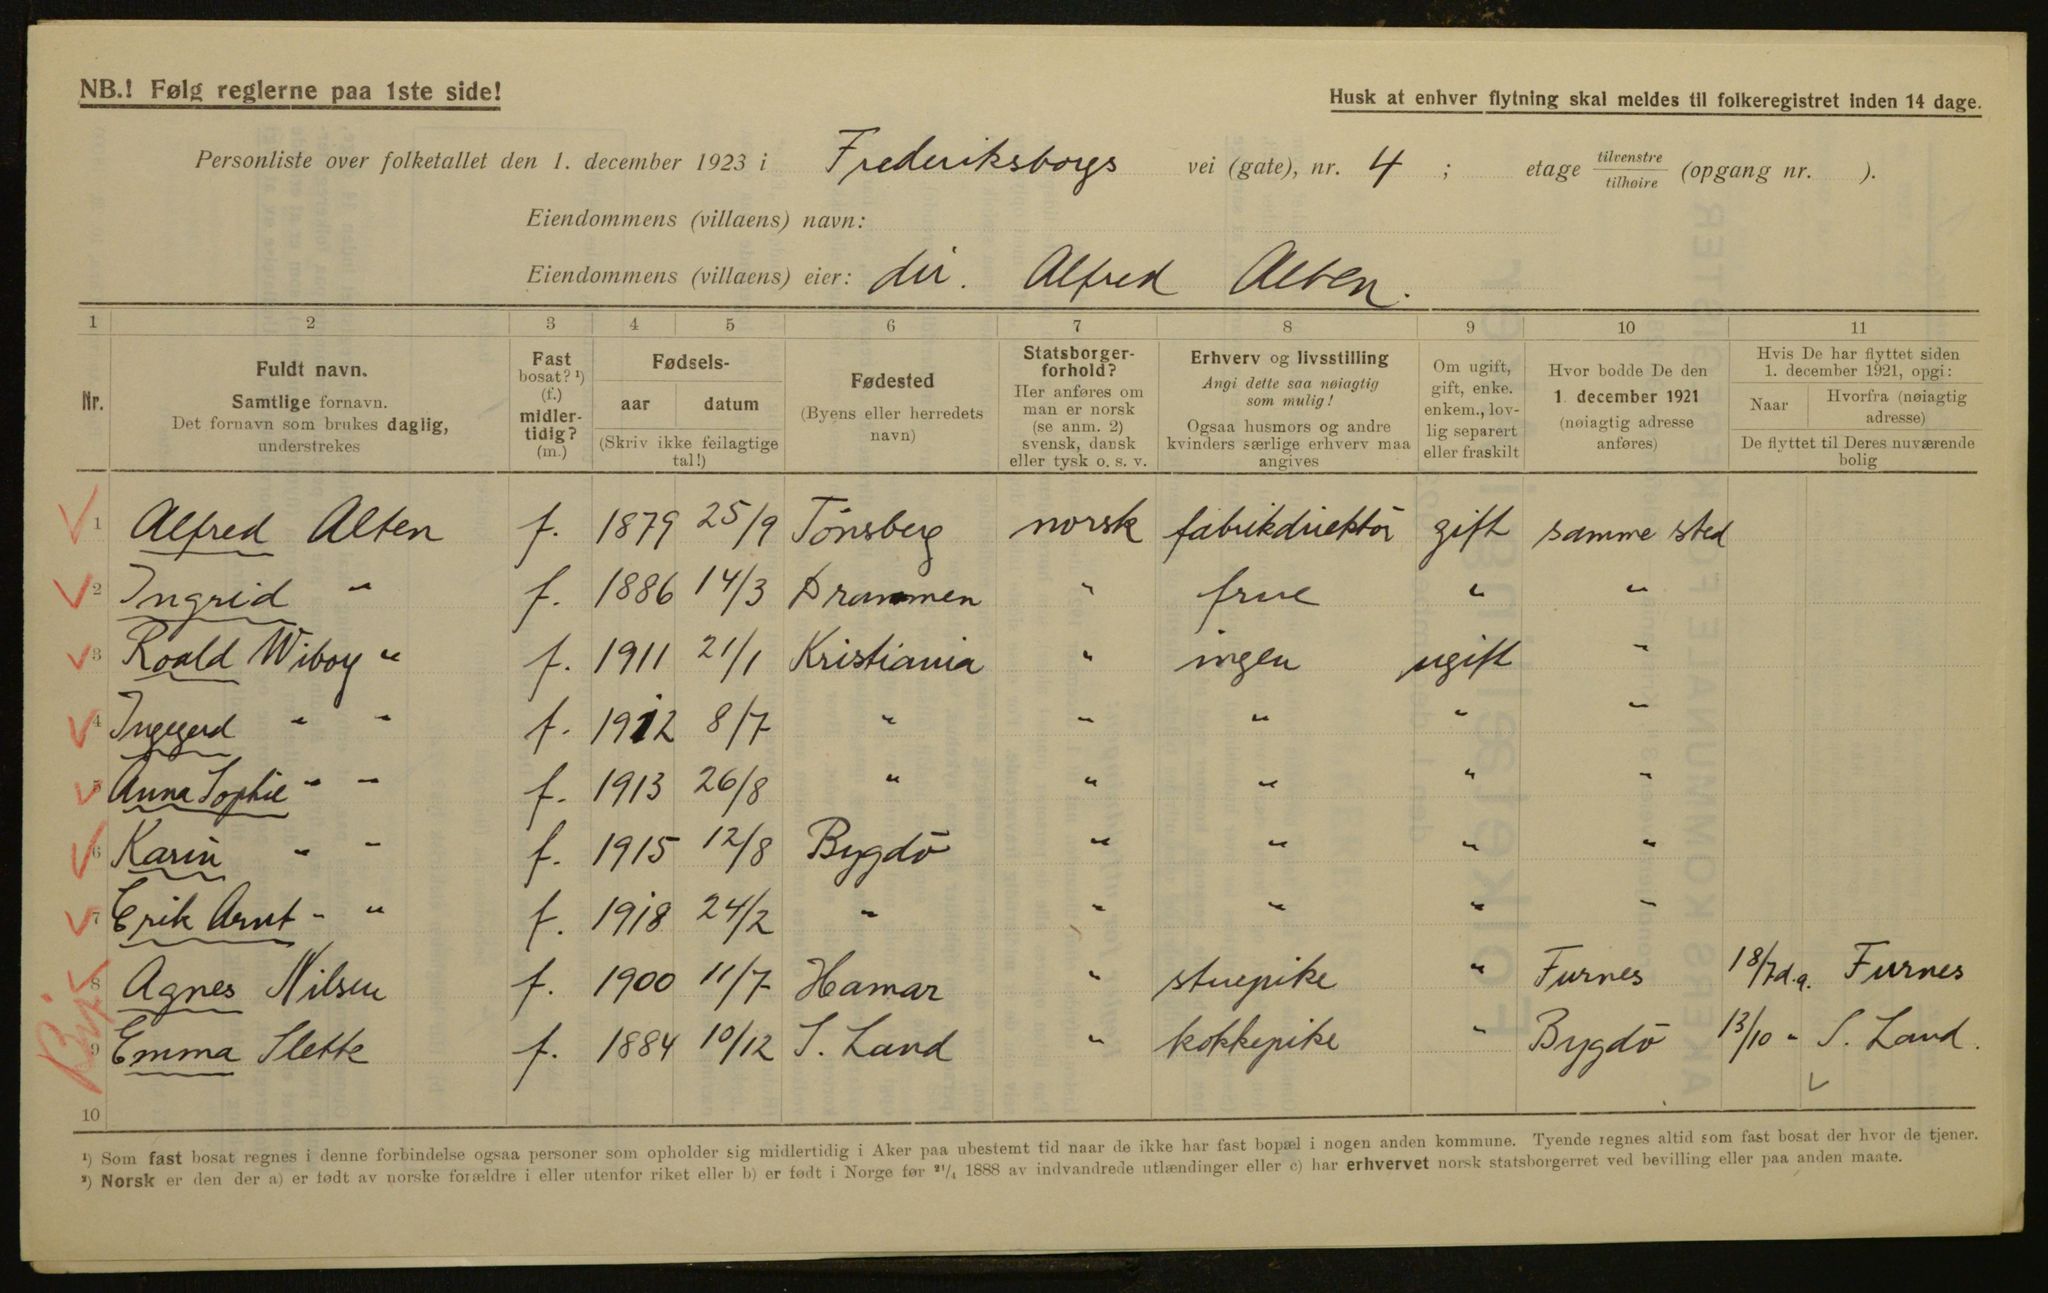 NB.! Følg reglerne paa 1ste side!
Husk at enhver flytning skal meldes til folkeregistret inden 14 dage.
Personliste over folketallet den 1. december 1923 i Frederiksborgs vei (gate), nr. 4 ; etage tilvenstre/tilhøire (opgang nr. ).
Eiendommens (villaens) navn:
Eiendommens (villaens) eier: dir. Alfred Alten.
1 2 3 4 5 6 7 8 9 10 11
Nr.
Fuldt navn.
Samtlige fornavn.
Det fornavn som brukes daglig,
understrekes
Fast
bosat? ¹)
(f.)
midler-
tidig?
(m.)
Fødsels-
aar datum
(Skriv ikke feilagtige
tal!)
Fødested
(Byens eller herredets
navn)
Statsborger-
forhold?
Her anføres om
man er norsk
(se anm. 2)
svensk, dansk
eller tysk o. s. v.
Erhverv og livsstilling
Angi dette saa nøiagtig
som mulig!
Ogsaa husmors og andre
kvinders særlige erhverv maa
angives
Om ugift,
gift, enke.
enkem., lov-
lig separert
eller fraskilt
Hvor bodde De den
1. december 1921
(nøiagtig adresse
anføres)
Hvis De har flyttet siden
1. december 1921, opgi:
Naar Hvorfra (nøiagtig
adresse)
De flyttet til Deres nuværende
bolig
1 Alfred Alten f. 1879 25/9 Tönsberg norsk fabrikdirektör gift samme sted
2 Ingrid " f. 1886 14/3 Drammen " frue " "
3 Roald Wiborg " f. 1911 21/1 Kristiania " ingen ugift "
4 Ingegerd " " f. 1912 8/7 " " " " "
5 Anna Sophie " " f. 1913 26/8 " " " " "
6 Karin " " f. 1915 12/8 Bygdö " " " "
7 Erik Arnt " " f. 1918 24/2 " " " " "
8 Agnes Nilsen f. 1900 11/7 Hamar " stuepike " Furnes 18/7 d.a. Furnes
9 Emma Slette f. 1884 10/12 S. Land " kokkepike " Bygdö 13/10 " S. Land.
10
¹) Som fast bosat regnes i denne forbindelse ogsaa personer som opholder sig midlertidig i Aker paa ubestemt tid naar de ikke har fast bopæl i nogen anden kommune. Tyende regnes altid som fast bosat der hvor de tjener.
²) Norsk er den der a) er født av norske forældre i eller utenfor riket eller b) er født i Norge før ²¹/₄ 1888 av indvandrede utlændinger eller c) har erhvervet norsk statsborgerret ved bevilling eller paa anden maate.